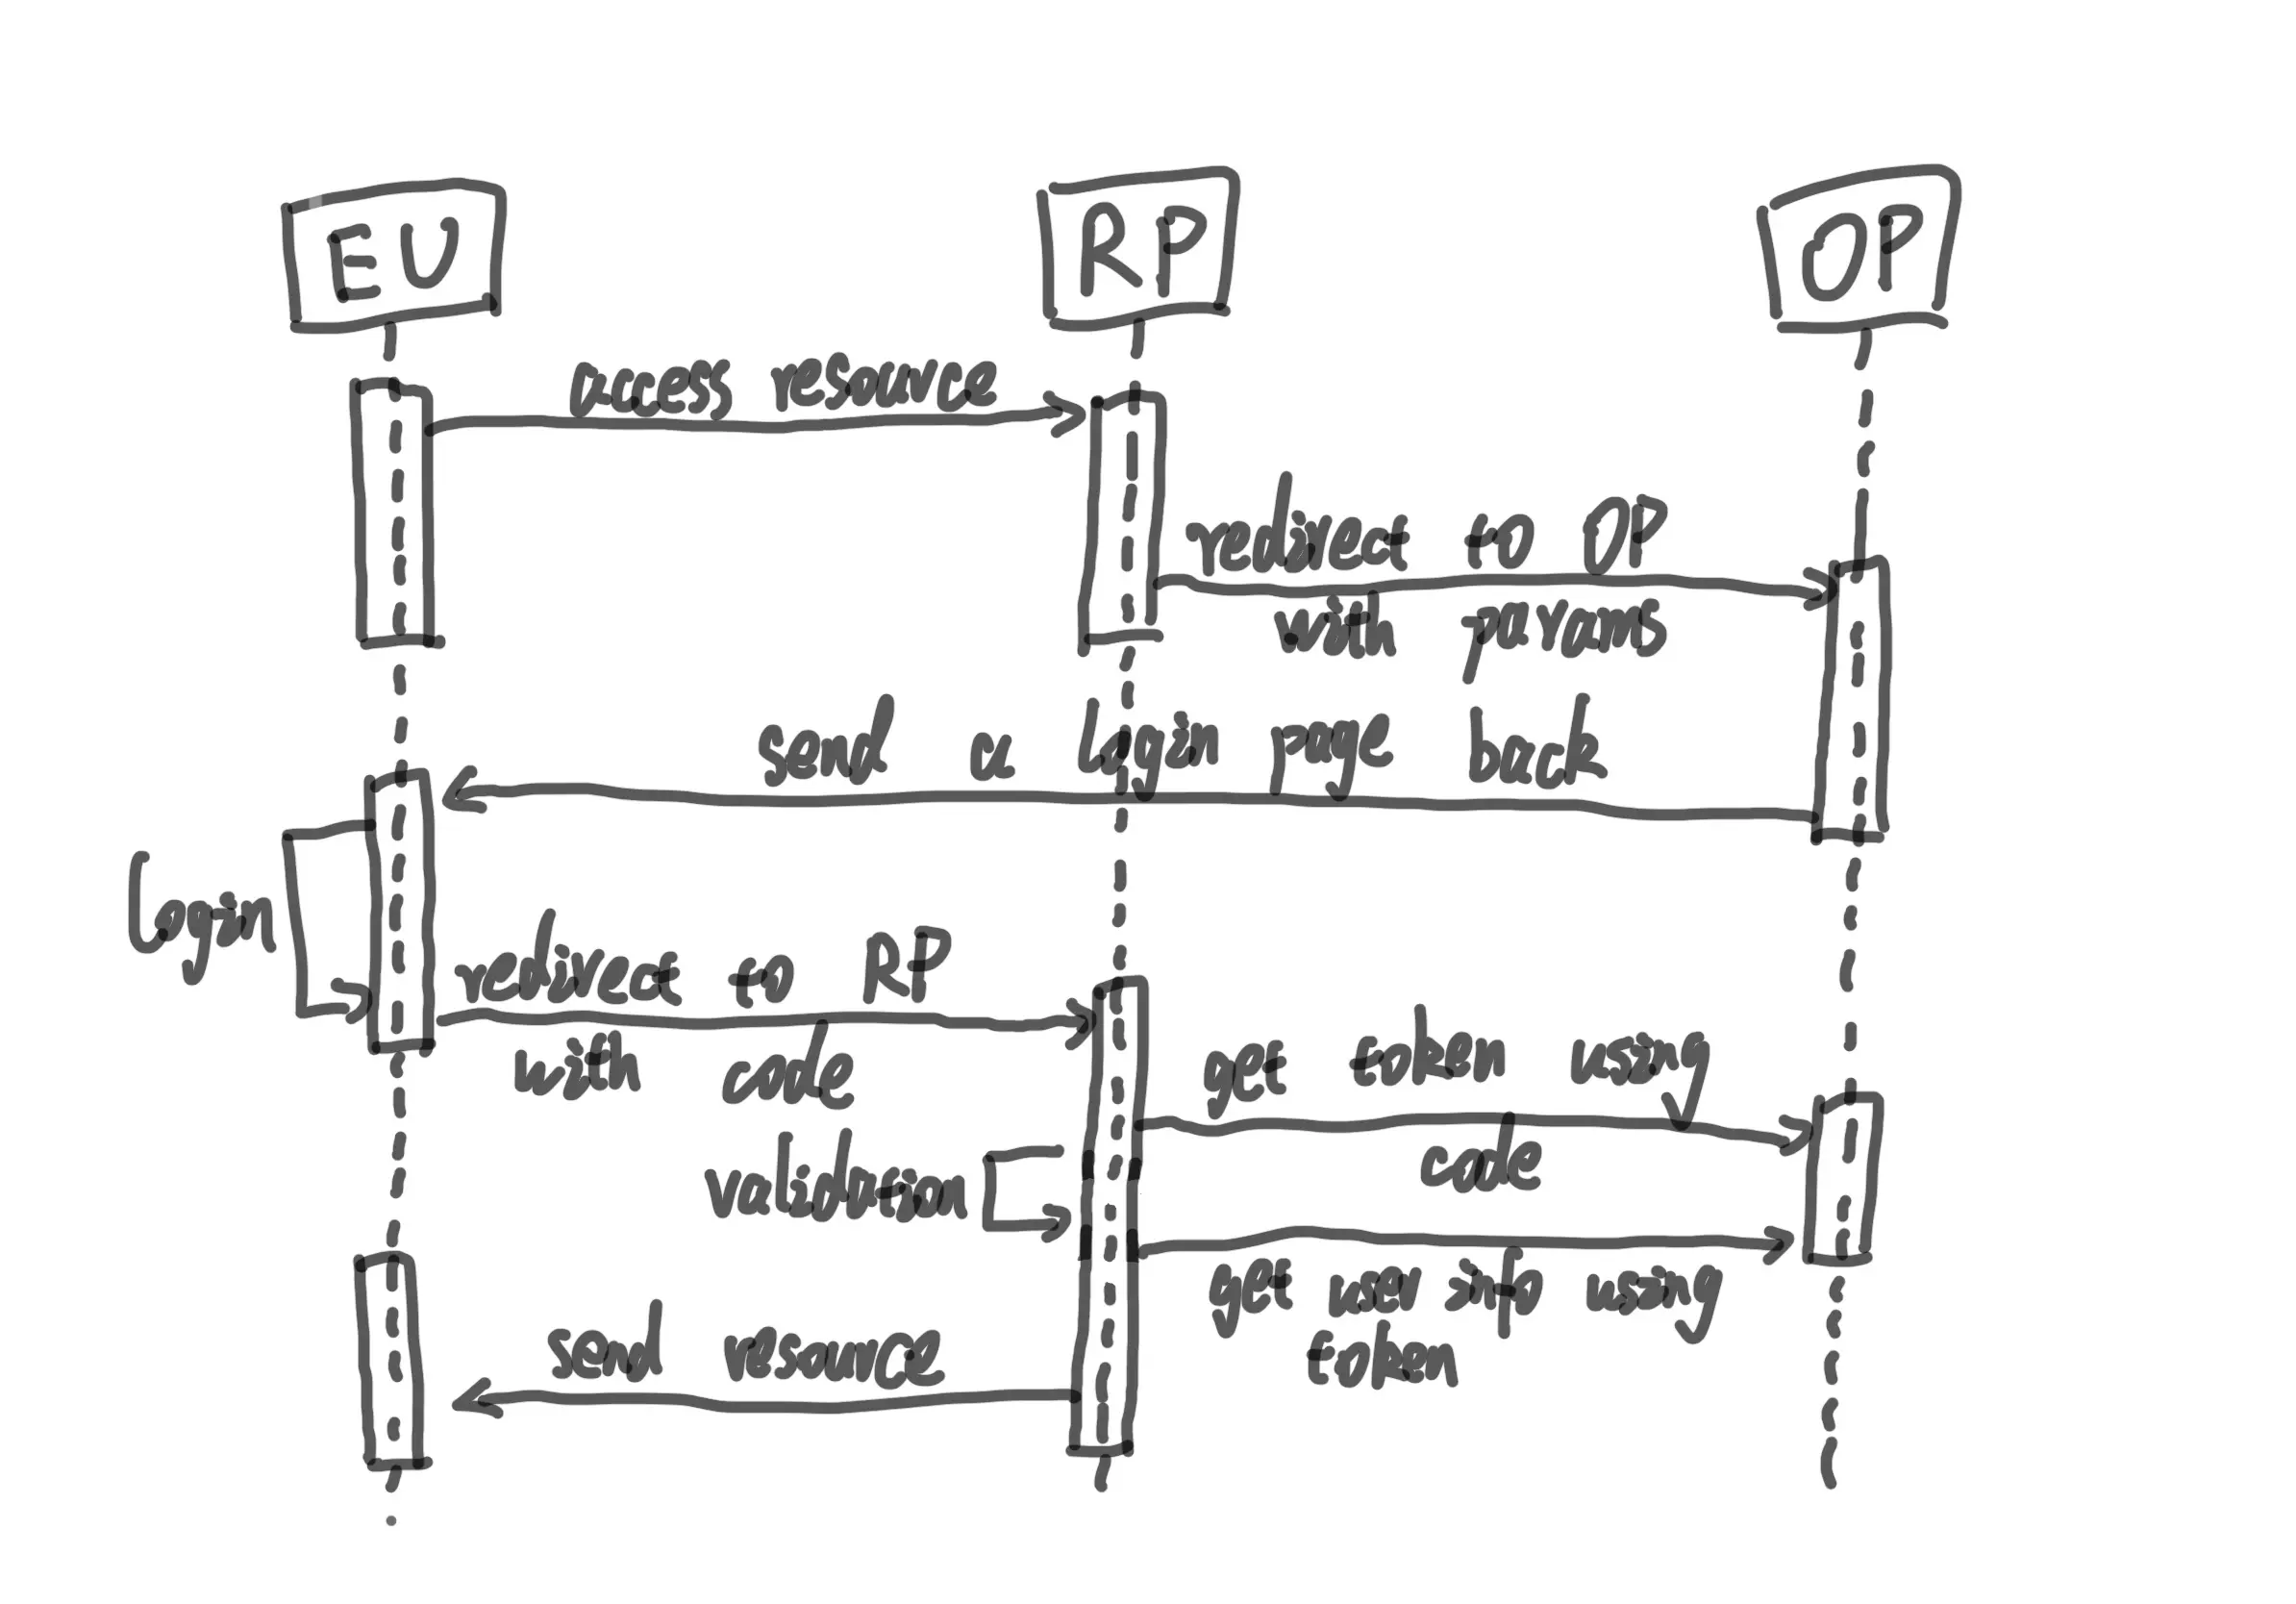 EU
RP
OP
access resource
redirect to OP
with params
send a login page back
login
redirect to RP
with code
get token using
code
validation
get user info using
token
send resource